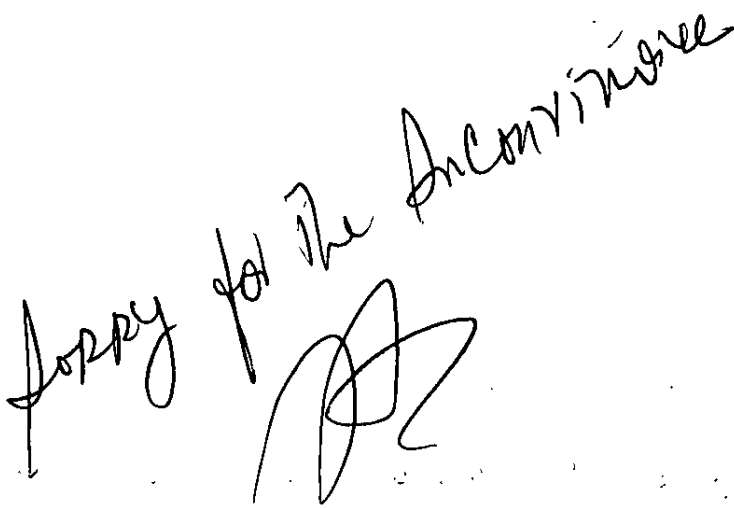 Sorry for the Inconvinience